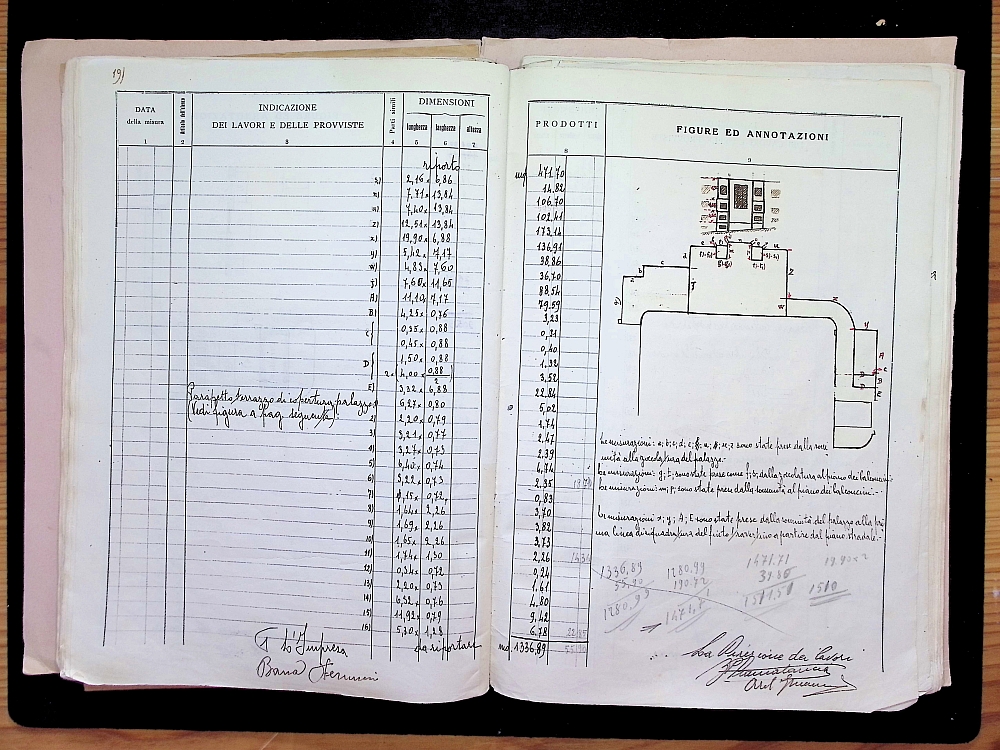 19)
DATA
della misura
INDICAZIONE
DEI LAVORI E DELLE PROVVISTE
Parti simili
DIMENSIONI
lunghezza
larghezza
altezza
1 2 3 4 5 6 7
riporto
s) 2,16 × 6,86
t) 7,71 × 13,84
u) 7,40 × 13,84
z) 12,51 × 13,84
x) 19,90 × 6,88
y) 5,42 × 7,17
w) 4,83 × 7,60
j) 7,60 × 11,65
A) 11,10 × 7,17
B) 4,25 × 0,76
C) 0,35 × 0,88
0,45 × 0,88
D) 1,50 × 0,88
2 × 4,00 × 0,88
2
E) 3,32 × 6,88
Parapetto terrazzo di copertura palazzo 1) 6,27 × 0,80
(Vedi figura a pag. seguente) 2) 2,20 × 0,79
3) 3,21 × 0,77
4) 3,27 × 0,73
5) 6,40 × 0,74
6) 3,22 × 0,73
7) 1,15 × 0,72
8) 1,64 × 2,26
9) 1,69 × 2,26
10) 1,65 × 2,26
11) 1,74 × 1,30
12) 0,34 × 0,72
13) 2,20 × 0,73
14) 6,32 × 0,76
15) 11,92 × 0,79
16) 5,30 × 1,28
da riportare
L'Impresa
PRODOTTI
8
mq 471.70
14.82
106.70
102.41
173.14
136.91
38.86
36.70
88.54
79.59
3.23
0.31
0.40
1.32
3.52
22.84
5.02
1.74
2.47
2.39
4.74
2.35
0.83
3.70
3.82
3.73
2.26
0.24
1.61
4.80
9.42
6.78
mq. 1336.89
FIGURE ED ANNOTAZIONI
9
sono state prese dalla som
mità alla zoccolatura del palazzo.-
Le misurazioni: g; t; sono state prese come f; b; dalla zoccolatura al piano dei balconcini.
Le misurazioni: m; p; sono state prese dalla sommità al piano dei balconcini.-
Le misurazioni x; y; A; E sono state prese dalla sommità del palazzo alla pri
ma linea di riquadratura del finto travertino a partire dal piano stradale.-
1336,89
55,90
1280.99
1280.99
190.72
1471.71
1471.71
39.80
1511.51
19.90 × 2
1510
La Direzione dei lavori